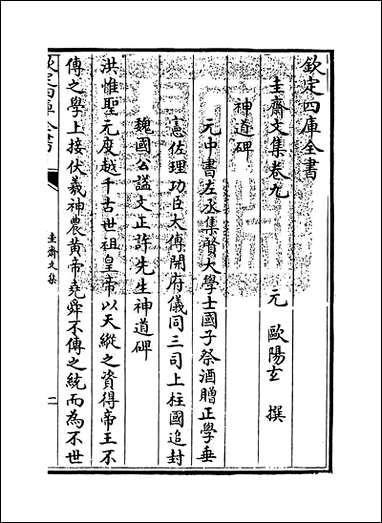 欽定四庫全書
圭齋文集卷九
元 歐陽玄 撰
神道碑
元中書左丞集賢大學士國子祭酒贈正學垂
憲佐理功臣太傅開府儀同三司上柱國追封
魏國公諡文正許先生神道碑
洪惟聖元度越千古世祖皇帝以天縱之資得帝王不
傳之學上接伏羲神農黃帝堯舜不傳之統而為不世
欽定四庫全書
圭齋文集
一